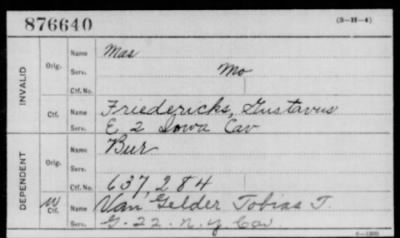 876640 (3-H-4)
INVALID
Orig. Name Mas
Serv. Mo
Ctf. No.
Ctf. Name Friedericks, Gustavus
Serv. E 2 Iowa Cav
DEPENDENT
Orig. Name Bur
Serv.
Ctf. No. 637,284
W Ctf. Name Van Gelder Tobias T.
Serv. G. 22. N. Y Cav.
6-1280